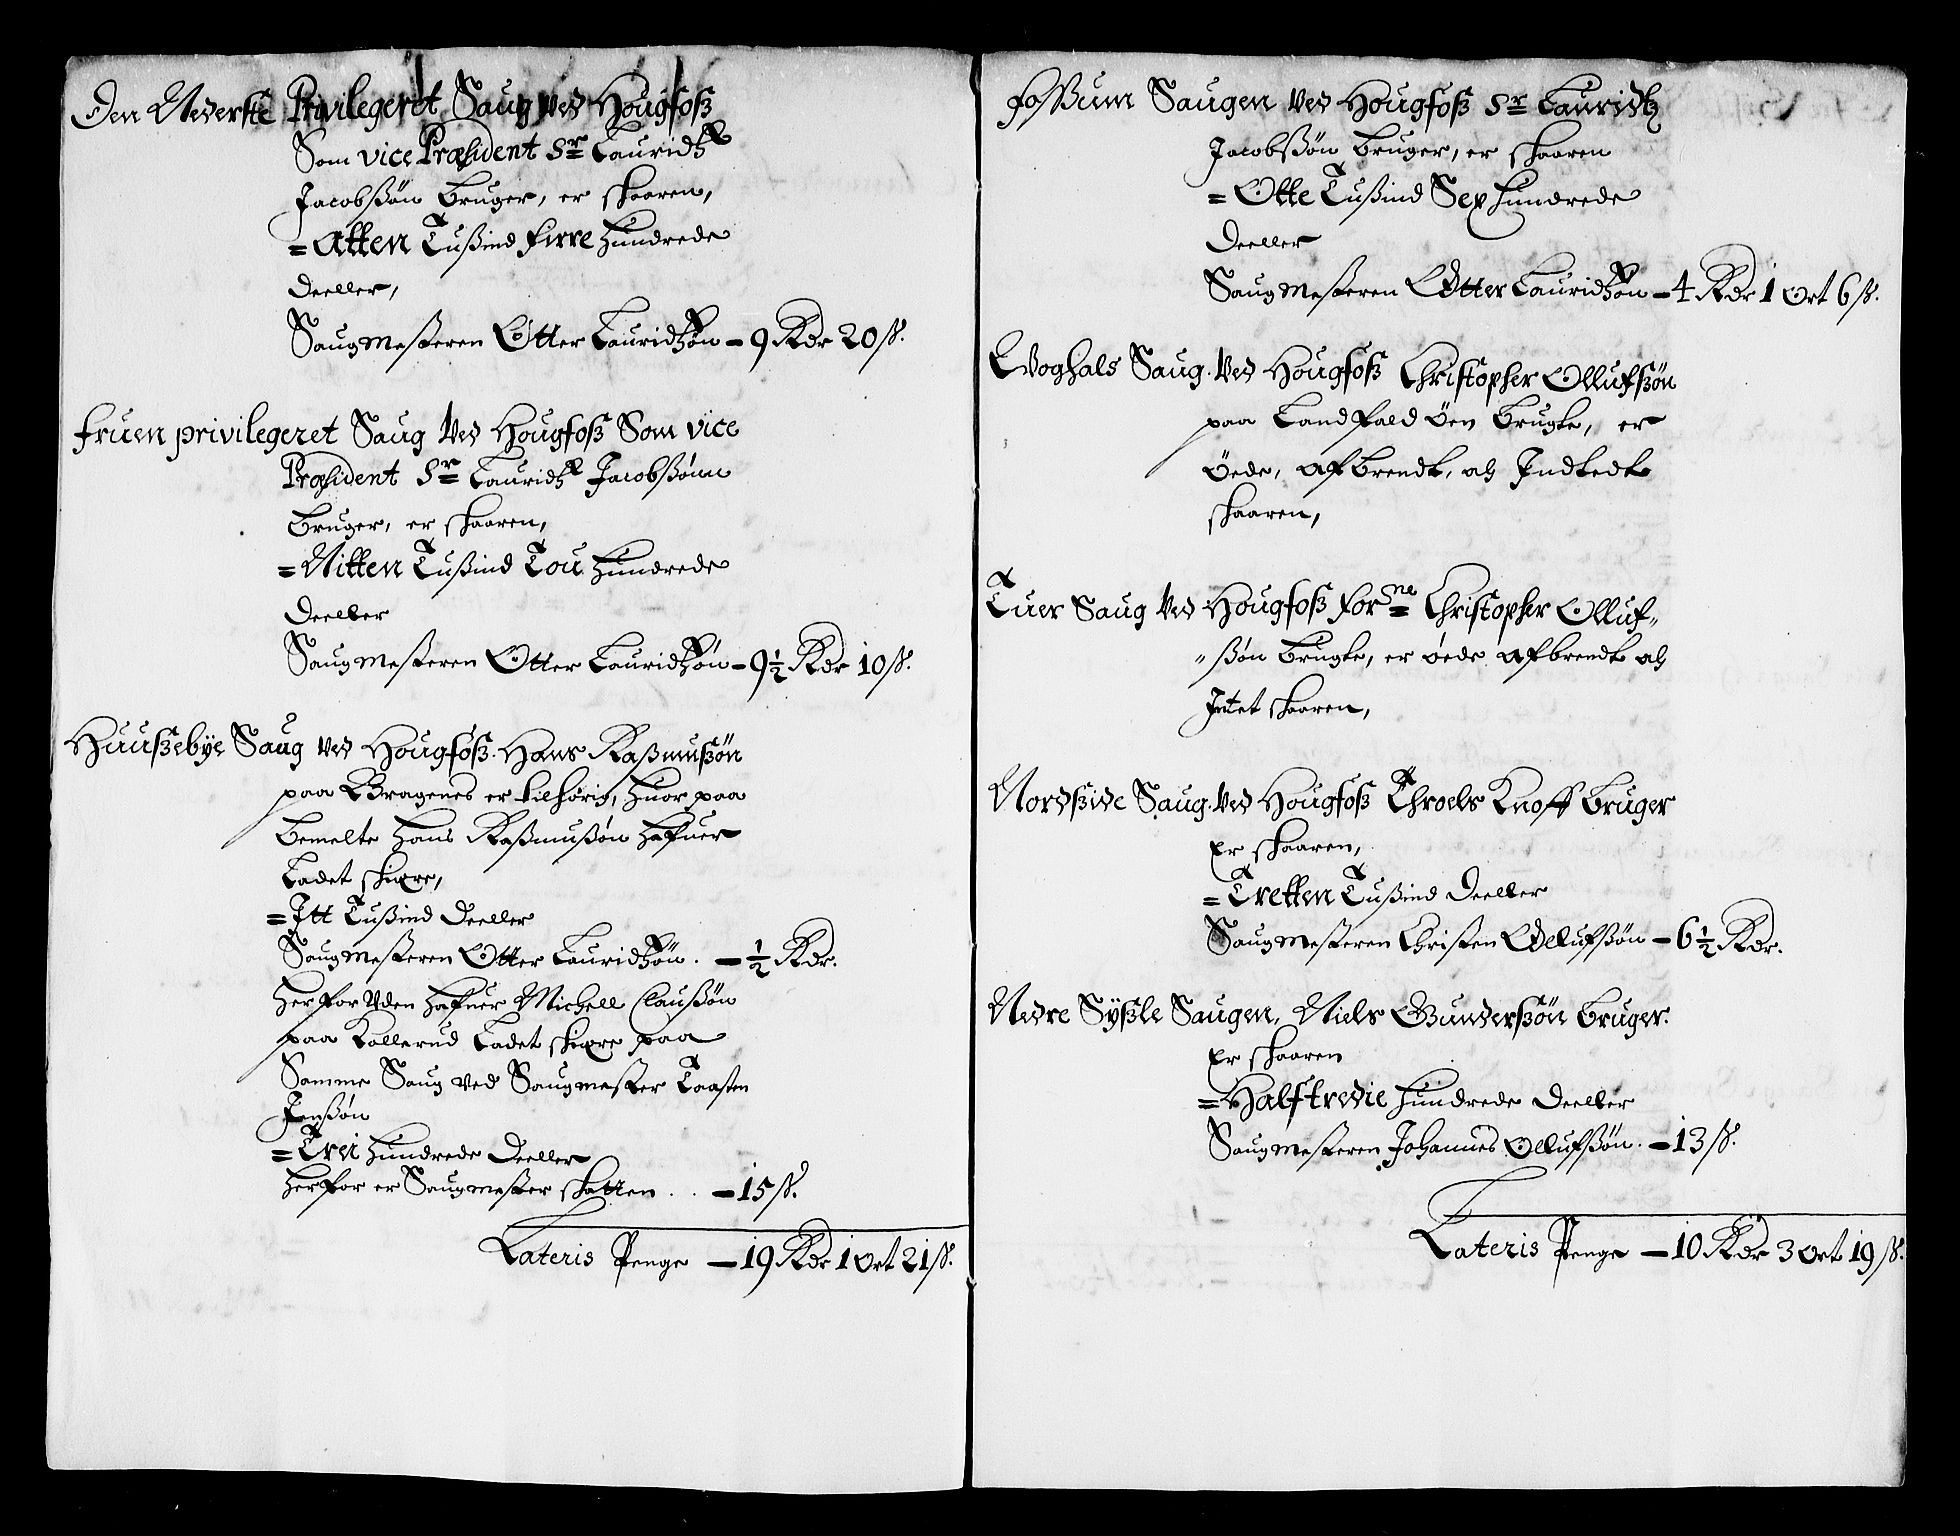 Den Nederste Privilegeret Saug ved Hougfosß
Som vice Præsident Sr Lauridtz
Jacobßøn Bruger, er skaaren,
= Atten Tußind firre Hundrede
Deeller,
Saugmesteren Otter Lauridtzøn – 9 Rdr 20 ß.
fruen privilegeret Saug Ved Hougfosß Som vice
Præsident Sr Lauridtz Jacobßønn
Bruger, er skaaren,
= Nitten Tußind Tou Hundrede
Deeller
Saugmesteren Otter Lauridtzøn – 9½ Rdr 10 ß.
Huußebÿe Saug ved Hougfosß. Hans Raßmusßøn
paa Bragenes er tilhørig, huor paa
bemelte Hans Raßmusßøn hafuer
Ladet skiære,
= Itt Tußind Deeller
Saugmesteren Otter Lauridtzøn. – ½ Rdr.
Herforuden hafuer Michell Claußøn
paa Kollerud Ladet skiære paa
Samme Saug ved Saugmester Taasten
Jenßøn
= Trei Hundrede Deeller
Herfor er Saugmester skatten . . – 15 ß.
Lateris Penge – 19 Rdr 1 ort 21 ß.
fossum Saugen ved Hougfosß Sr Lauridtz
Jacobßøn Bruger, er skaaren
= Otte Tußind Sex hundrede
Deeller
Saugmesteren Otter Lauridtzøn – 4 Rdr 1 ort 6 ß.
Woghals Saug. Ved Hougfosß Christopher Ollufsßøn
paa Landfald øen Brugte, er
øede, afbrendt, og Indtedt
skaaren,
Tuer Saug Ved Hougfosß forne Christopher Olluf„
„ßøn Brugte, er øede afbrendt og
Intet skaaren,
Nordßide Saug. Ved Hougfosß Throels Knoff Bruger
Er skaaren,
= Tretten Tußind Deeller
Saugmesteren Christen Ollufsßøn – 6½ Rdr.
Nedre Sÿßle Saugen, Niels Gunderßøn Bruger.
Er skaaren
= Halftredie hundrede Deeller
Saugmesteren Johannes Ollufsßøn. – 13 ß.
Lateris Penge – 10 Rdr 3 ort 19 ß.